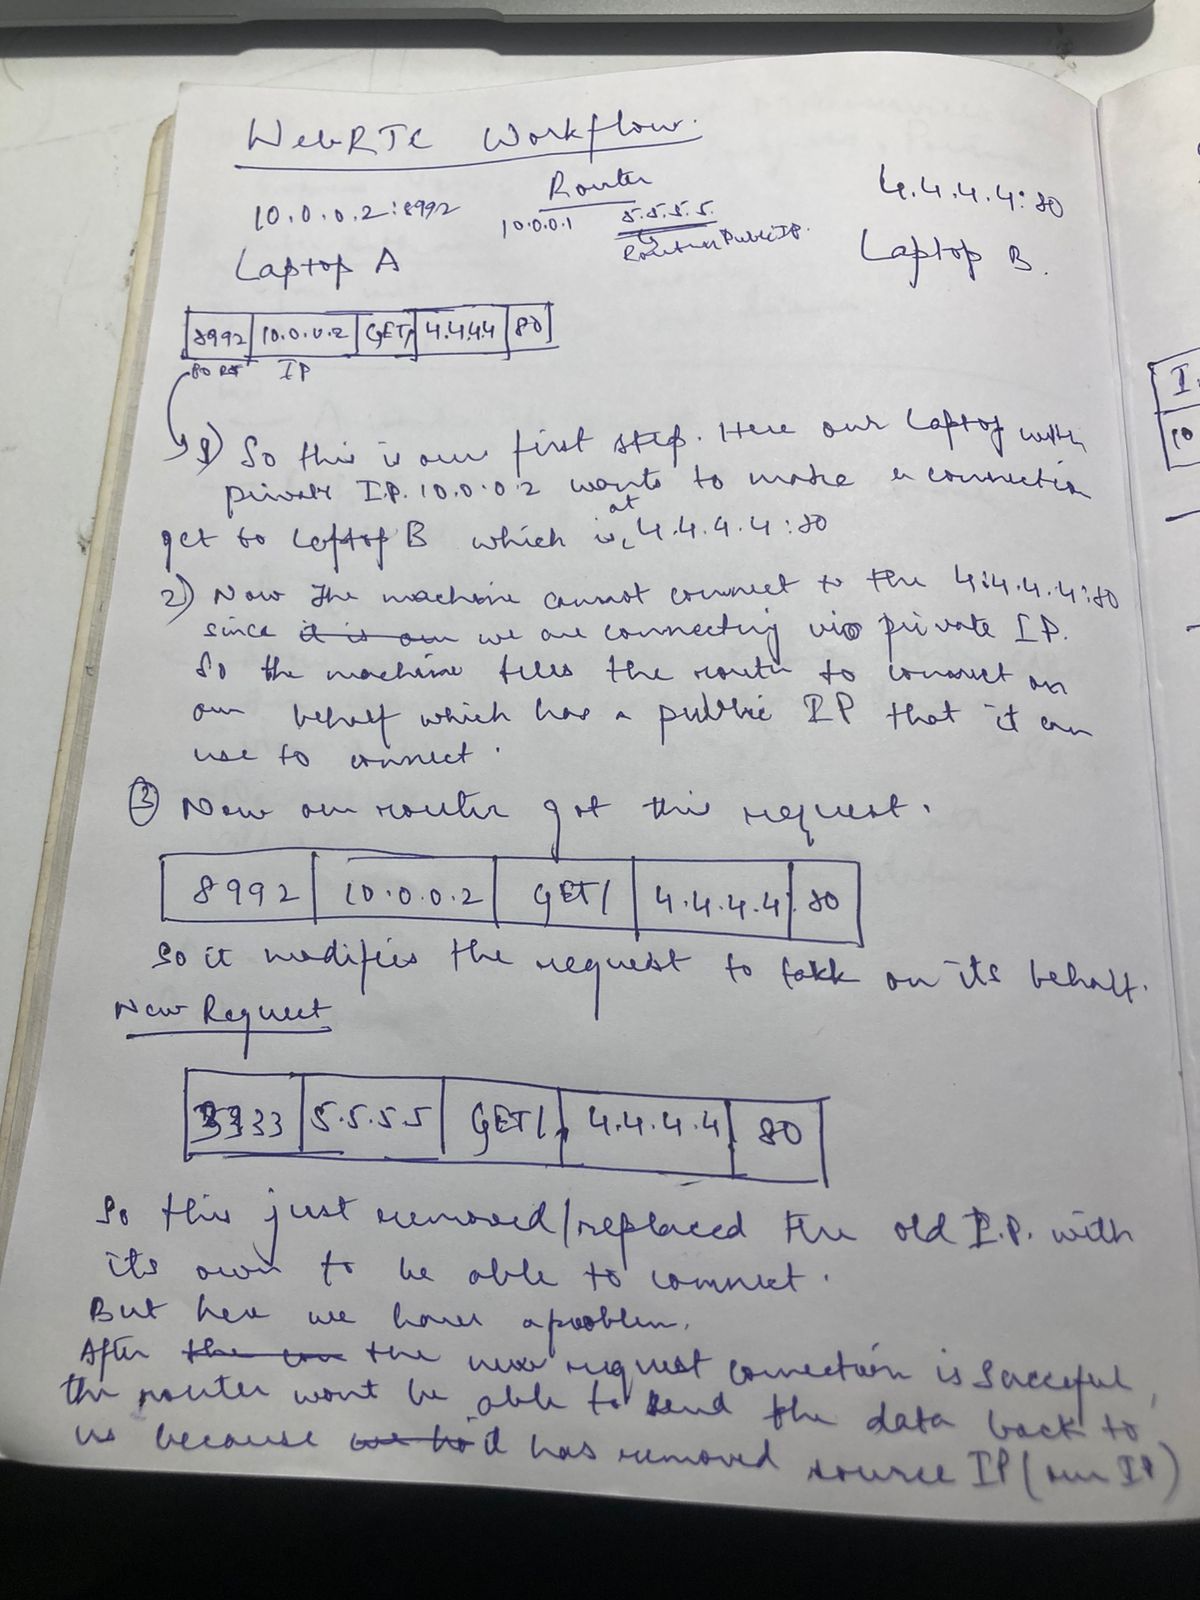 WebRTC Workflow.
Router
10.0.0.2:8992 10.0.0.1 5.5.5.5. 4.4.4.4:80
Router Public IP.
Laptop A Laptop B.
8992 10.0.0.2 GET/ 4.4.4.4 80
IP
1) So this is our first step. Here our Laptop with
private I.P. 10.0.0.2 wants to make a connection
get to Laptop B which is at 4.4.4.4:80
2) Now the machine cannot connect to the 4.4.4.4:80
since it is our we are connecting via private IP.
So the machine tells the router to connect on
our behalf which has a public IP that it can
use to connect.
3 Now our router got this request.
8992 10.0.0.2 GET/ 4.4.4.4 80
So it modifies the request to talk on its behalf.
New Request
3333 5.5.5.5 GET/ 4.4.4.4 80
So this just removed/replaced the old I.P. with
its own to be able to connect.
But here we have a problem.
After the con the new request connection is Succeful,
the router wont be able to send the data back to
us because it has removed source IP (our IP)
I
10